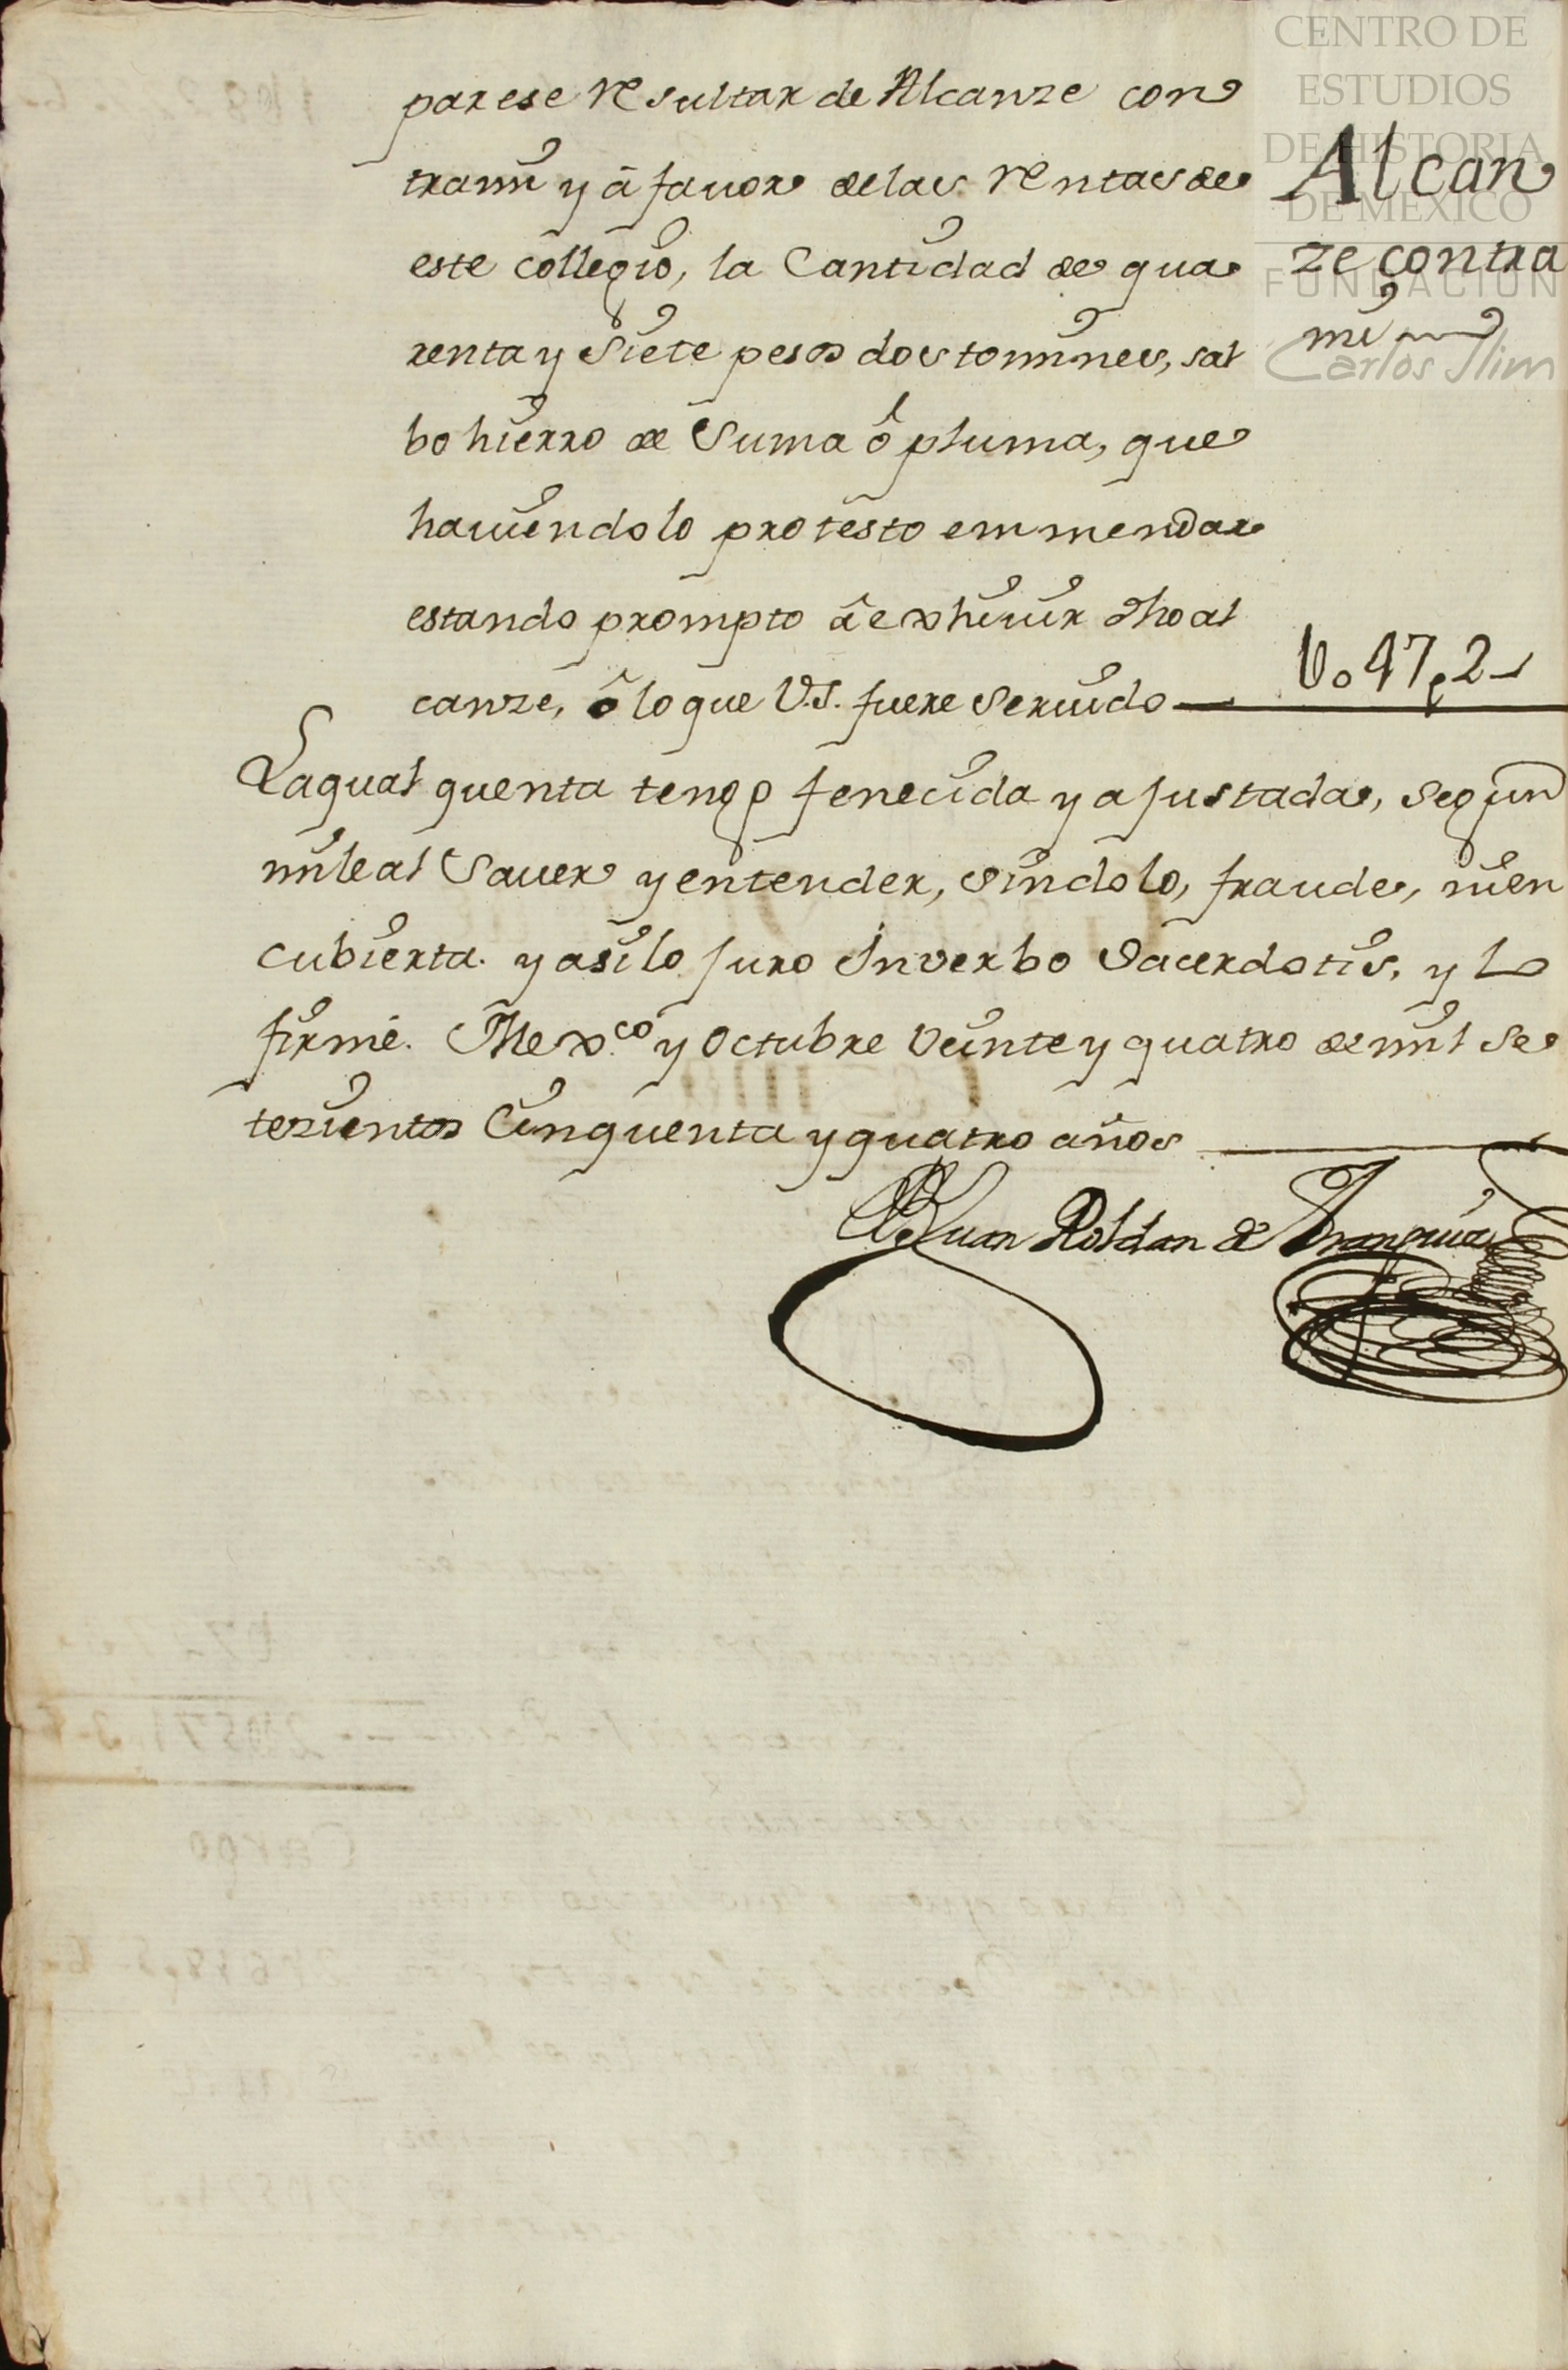 parese resultar de Alcanze con
tra mi y â favor de las rentas de
este collegio, la Cantidad de qua
renta y Siete pesos dos tomines, sal
bo hierro de Suma ô pluma, que
haviendolo protesto emmendar
estando prompto â exhivir dho al
canze, ô lo que V.S. fuere servido
Alcan
ze contra
mi
U० 47 p 2
La qual quenta tengo fenecida y ajustada, segun
mi leal Saver y entender, sin dolo, fraude, ni en
cubierta. y asi lo juro In verbo Sacerdotis, y lo
firmé. Mexco y Octubre veinte y quatro de mil se
tezientos Cinquenta y quatro años
Juan Roldan de Aranguiz
CENTRO DE
ESTUDIOS
DE HISTORIA
DE MEXICO
FUNDACIÓN
Carlos Slim